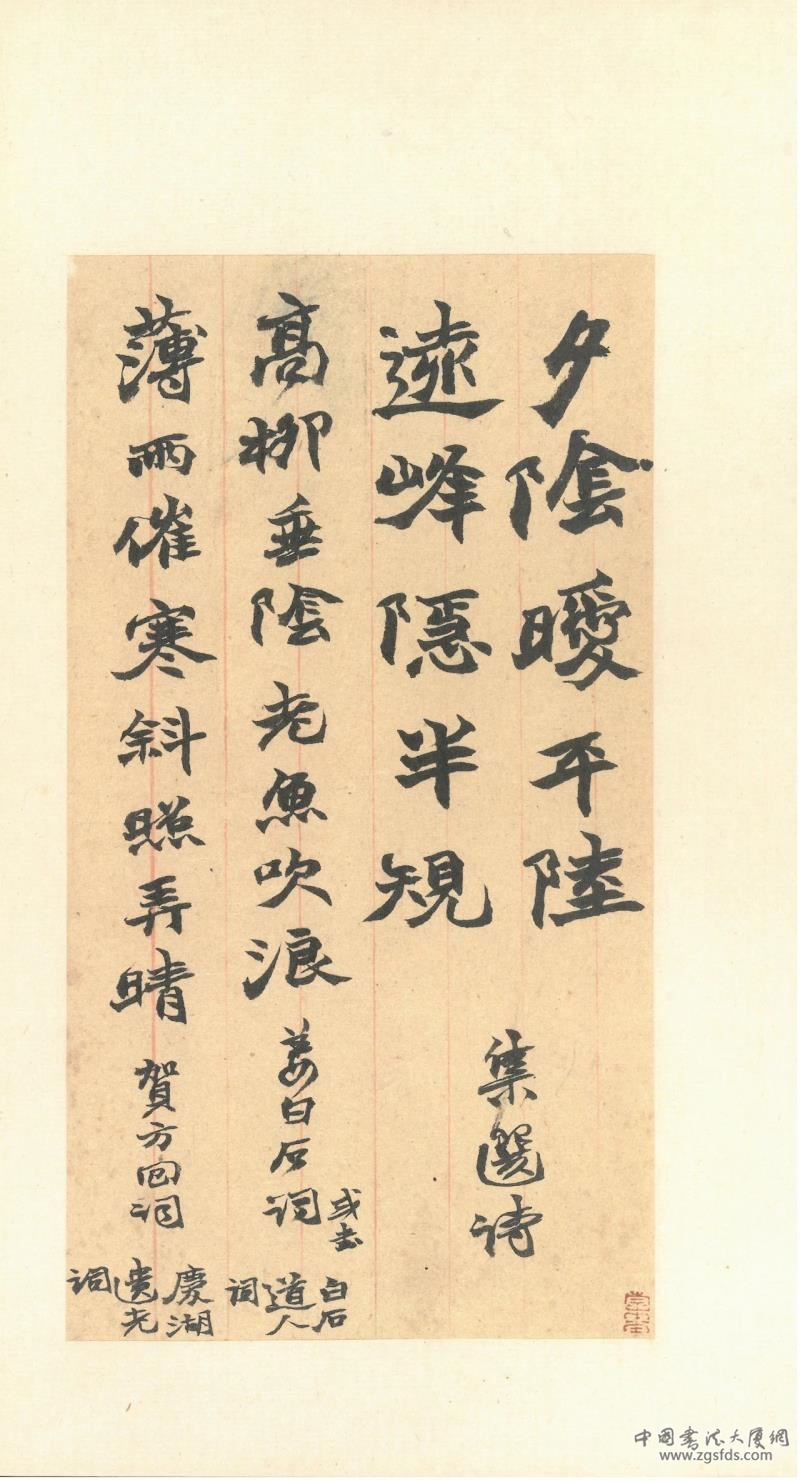 夕陰曖平陸
遠峰隱半規
集選詩
高柳垂陰老魚吹浪
姜白石詞
或書
白石
道人
詞
薄雨催寒斜照弄晴
賀方回詞
慶湖
遺老
詞
中国書法大厦網
www.zgsfds.com